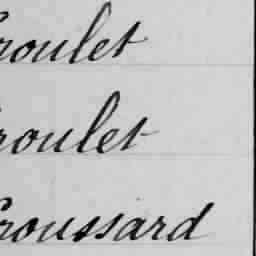 roulet
roulet
roussard